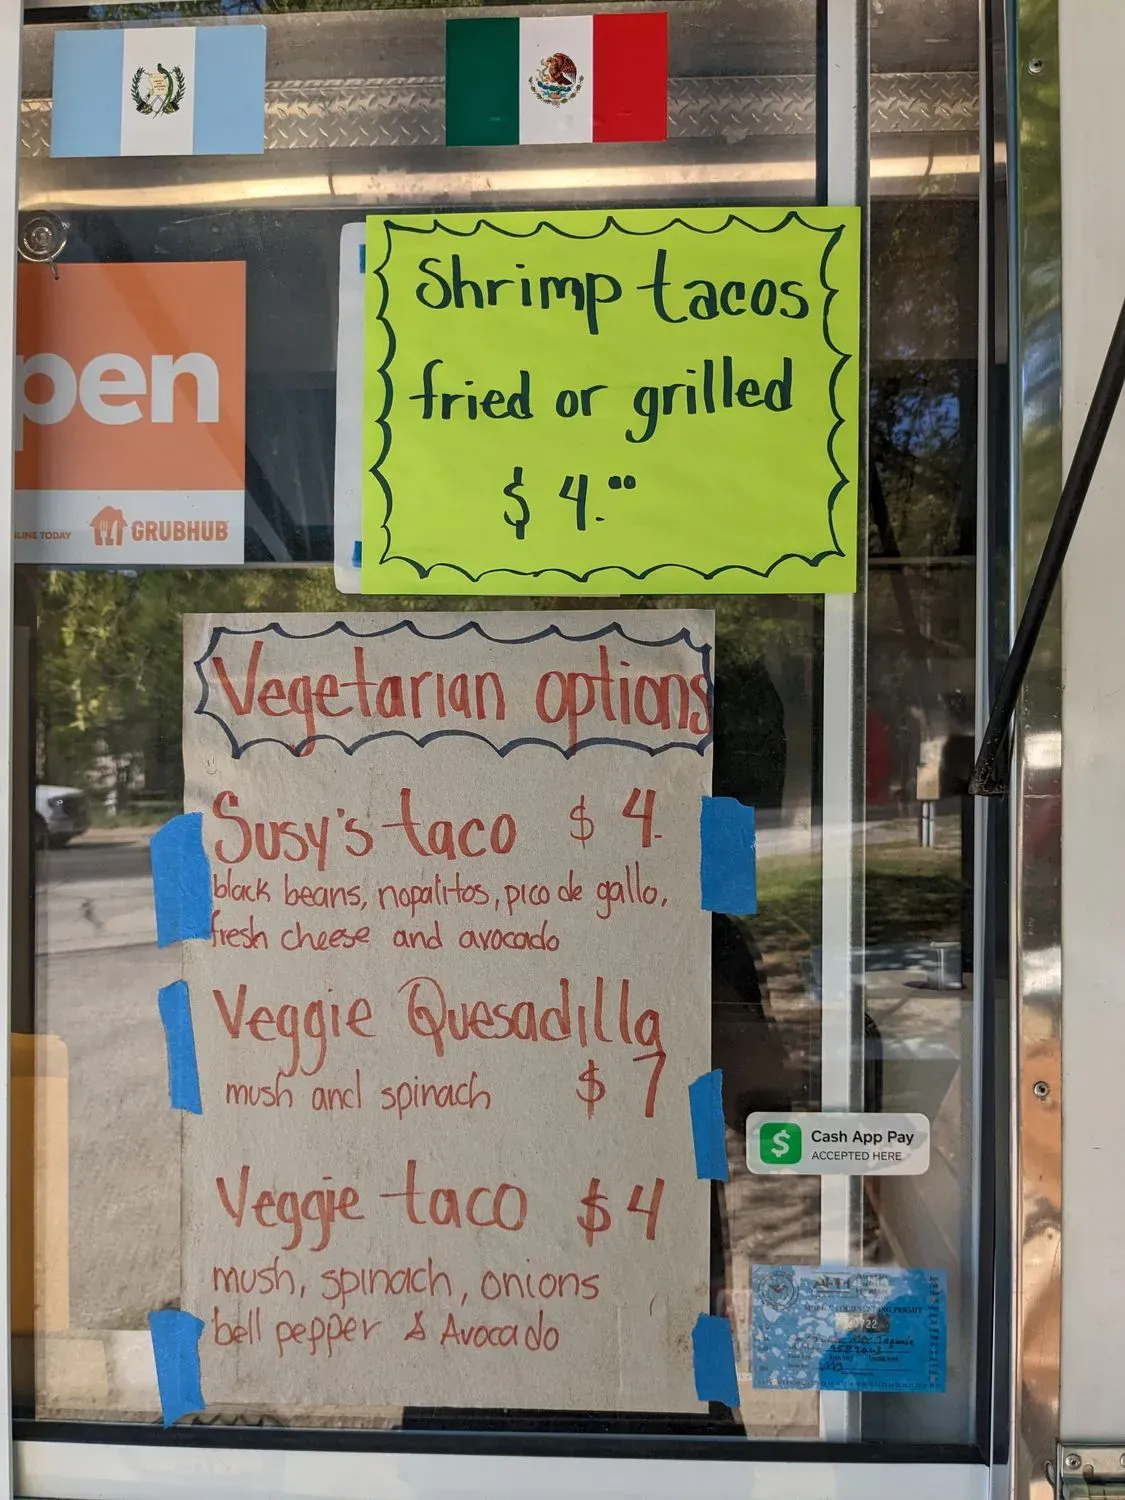 Shrimp tacos
fried or grilled
$ 4.00
pen
LINE TODAY
GRUBHUB
Vegetarian options
Susy's taco $ 4.
black beans, nopalitos, pico de gallo,
fresh cheese and avocado
Veggie Quesadilla
mush and spinach $ 7
Veggie taco $4
mush, spinach, onions
bell pepper & Avocado
Cash App Pay
ACCEPTED HERE
APH Austin
Public
VENDING PERMIT